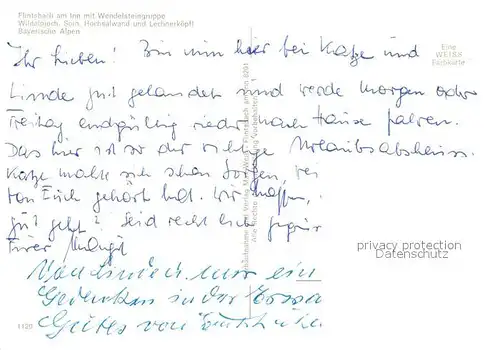 Flintsbach am Inn mit Wendelsteingruppe
Wildalpjoch, Soin, Hochsalwand und Lechnerköpfl
Bayerische Alpen
Eine
WEISS
Fachkarte
Ihr Lieben! Bin nun hier bei Katze und
Linde gut gelandet und werde morgen oder
Freitag endgültig wieder nach Hause fahren.
Das hier ist so der richtige Urlaubsabschluss.
Katze macht sich schon Sorgen,
von Euch gehört hat. Wir hoffen,
gut geht? Seid recht lieb
Eurer
Von Linden nur ein
Gedenken in der
Gutes von
privacy protection
Datenschutz
1129